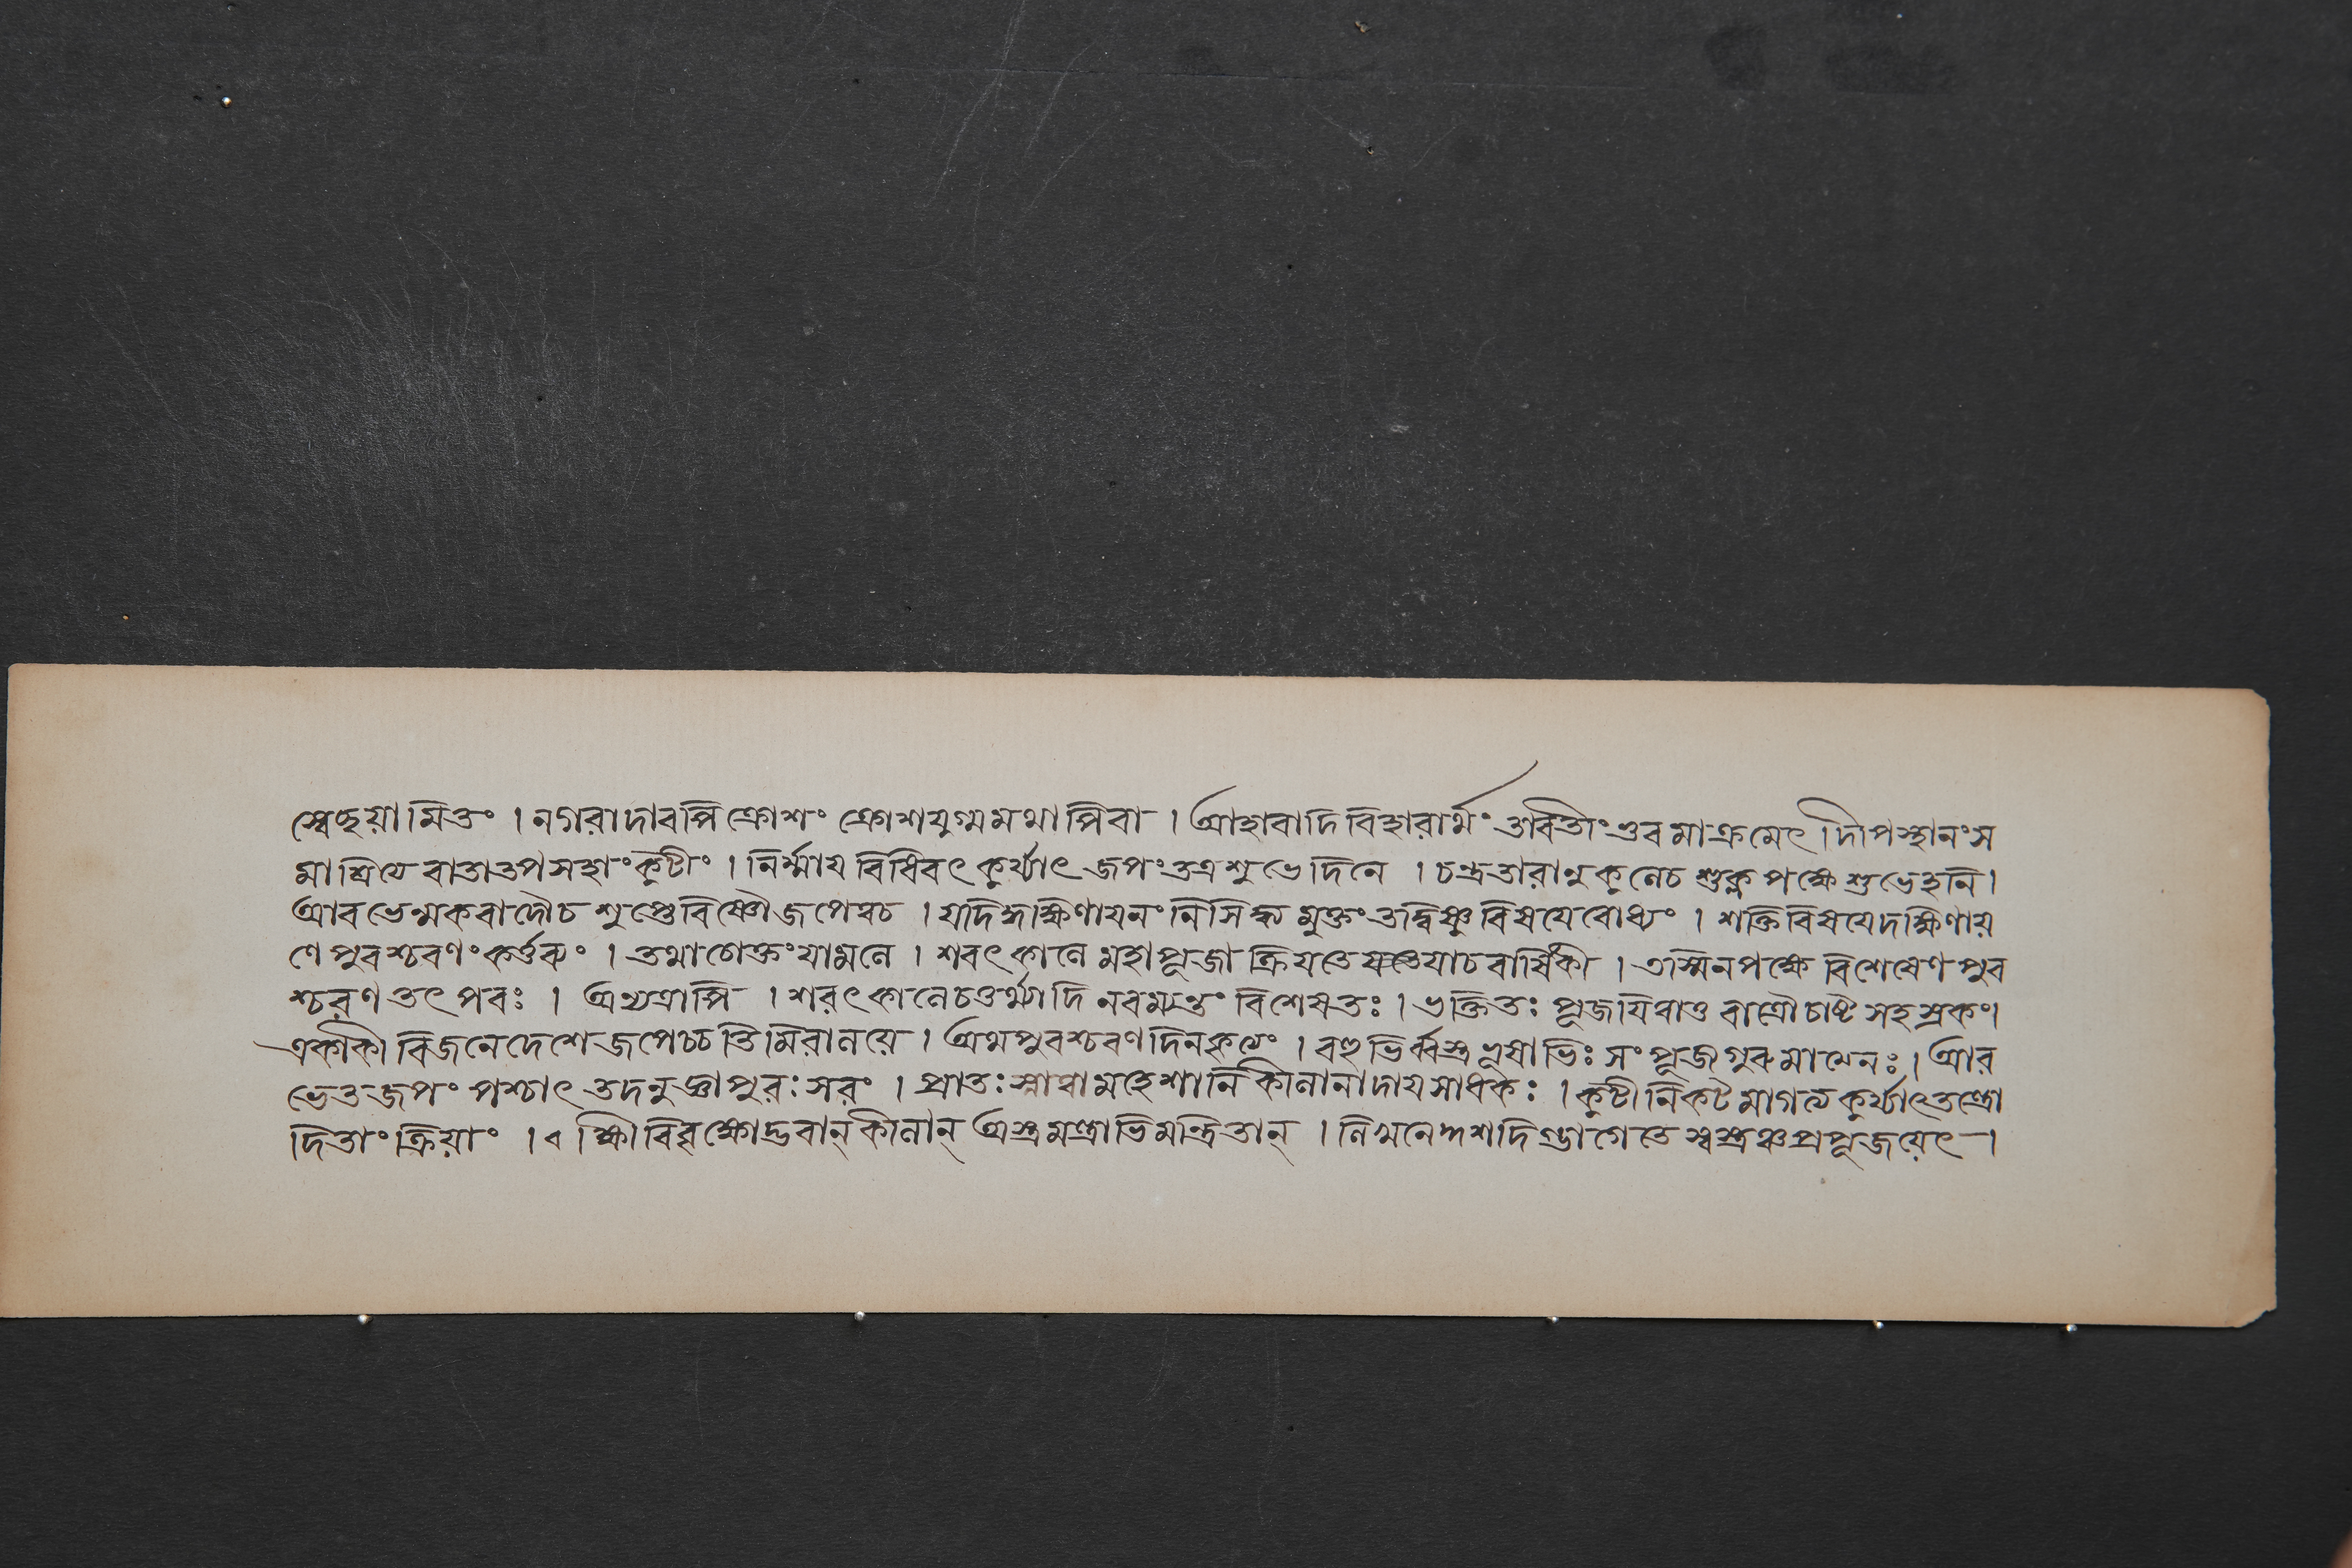 স্বেচ্ছয়ামিতং । নগরাদাবপি ক্রোশং ক্রোশযুগ্মমথাপিবা । আহাবাদিবিহারার্থং তাবতীং ভুবমাক্রমেৎ । দীপস্থানংস
মাশ্রিত্যে বাতাতপসহাংকুটীং । নির্ম্মায বিধিবৎ কুর্য্যাৎ জপং তত্র শুভে দিনে । চন্দ্রতারানুকুলেচ শুক্লপক্ষে শুভেহনি ।
আবভেন্মকবাদৌচ শুপ্তেবিষ্ণৌ জপেন্নচ । যদিদ্দক্ষিণাযনং নিসিদ্ধমুক্তং তদ্বিষ্ণুবিসযেবোধ্যং । শক্তিবিসযেদক্ষিণায়
ণে পুবশ্চবণং কর্ত্তব্যং । তথাচোক্তং যামলে । শবৎকালে মহাপূজা ক্রিযতে যাচ বার্ষিকী । তস্মিনপক্ষে বিশেষেণ পুব
শ্চরণ তৎপবঃ । অন্যত্রাপি । শরৎকালেচতুর্থ্যাদি নবম্যন্তং বিশেষতঃ । ভক্তিতঃ পূজযিত্বাতু বাত্রৌ চাষ্ট সহস্রকং ।
একাকী বিজনেদেশে জপেচ্চ তিমিরালয়ে । অথপুবশ্চবণদিনকৃত্যং । বহুভির্ব্বস্ত্রভূষাভিঃ সংপূজ্যগুরুমাত্মনঃ । আর
ভেত্ত জপং পশ্চাৎ তদনুজ্ঞাপুরঃসরং । প্রাতঃস্নাত্বামহেশানি কীলানাদায সাধকঃ । কুটীনিকটমাগত্য কুর্য্যাৎতন্ত্রো
দিতাং ক্রিয়াং । ক্ষীবিবৃক্ষোদ্ভবান্ কীলান্ অস্ত্রমন্ত্রাভিমন্ত্রিতান্ । নিখনেদ্দশদিগ্ভাগে তেস্বস্ত্রঞ্চ প্রপূজয়েৎ ।